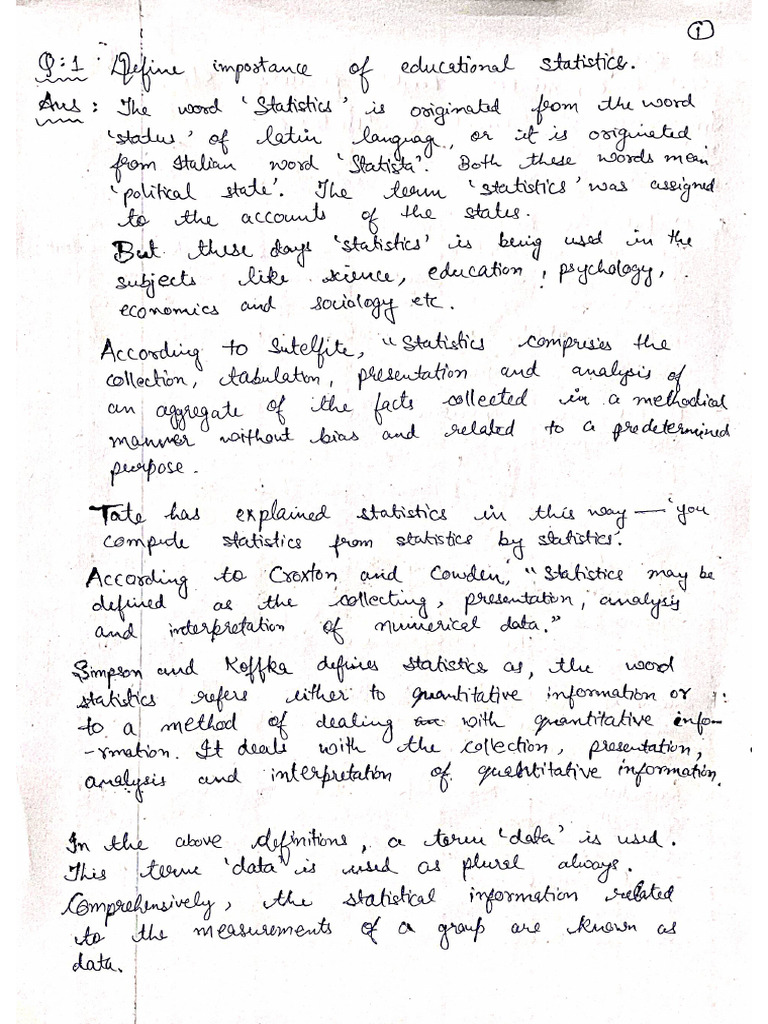 1
Q:1 : Define importance of educational statistics.
Ans : The word 'Statistics' is originated from the word
'status' of latin language, or it is originated
from Italian word 'Statista'. Both these words mean
'political state'. The term 'statistics' was assigned
to the accounts of the states.
But these days 'statistics' is being used in the
subjects like science, education, psychology,
economics and sociology etc.
According to Sutelfite, "Statistics compreses the
collection, tabulation, presentation and analysis of
an aggregate of the facts collected in a methodical
manner without bias and related to a predetermined
purpose.
Tate has explained statistics in this way — 'you
compute statistics from statistics by statistics'.
According to Croxton and Cowden, "Statistics may be
defined as the collecting, presentation, analysis
and interpretation of numerical data."
Simpson and Koffka defines statistics as, the word
statistics refers either to quantitative information or
to a method of dealing with quantitative info-
-rmation. It deals with the collection, presentation,
analysis and interpretation of quantitative information.
In the above definitions, a term 'data' is used.
This term 'data' is used as plural always.
Comprehensively, the statistical information related
to the measurements of a group are known as
data.